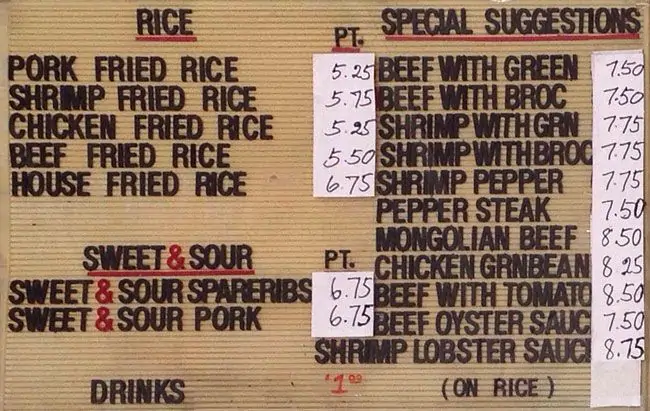 RICE
PT.
PORK FRIED RICE 5.25
SHRIMP FRIED RICE 5.75
CHICKEN FRIED RICE 5.25
BEEF FRIED RICE 5.50
HOUSE FRIED RICE 6.75
SWEET & SOUR
PT.
SWEET & SOUR SPARERIBS 6.75
SWEET & SOUR PORK 6.75
DRINKS $1.00
SPECIAL SUGGESTIONS
BEEF WITH GREEN 7.50
BEEF WITH BROC 7.50
SHRIMP WITH GRN 7.75
SHRIMP WITH BROC 7.75
SHRIMP PEPPER 7.75
PEPPER STEAK 7.50
MONGOLIAN BEEF 8.50
CHICKEN GRNBEAN 8.25
BEEF WITH TOMATO 8.50
BEEF OYSTER SAUC 7.50
SHRIMP LOBSTER SAUCE 8.75
(ON RICE)